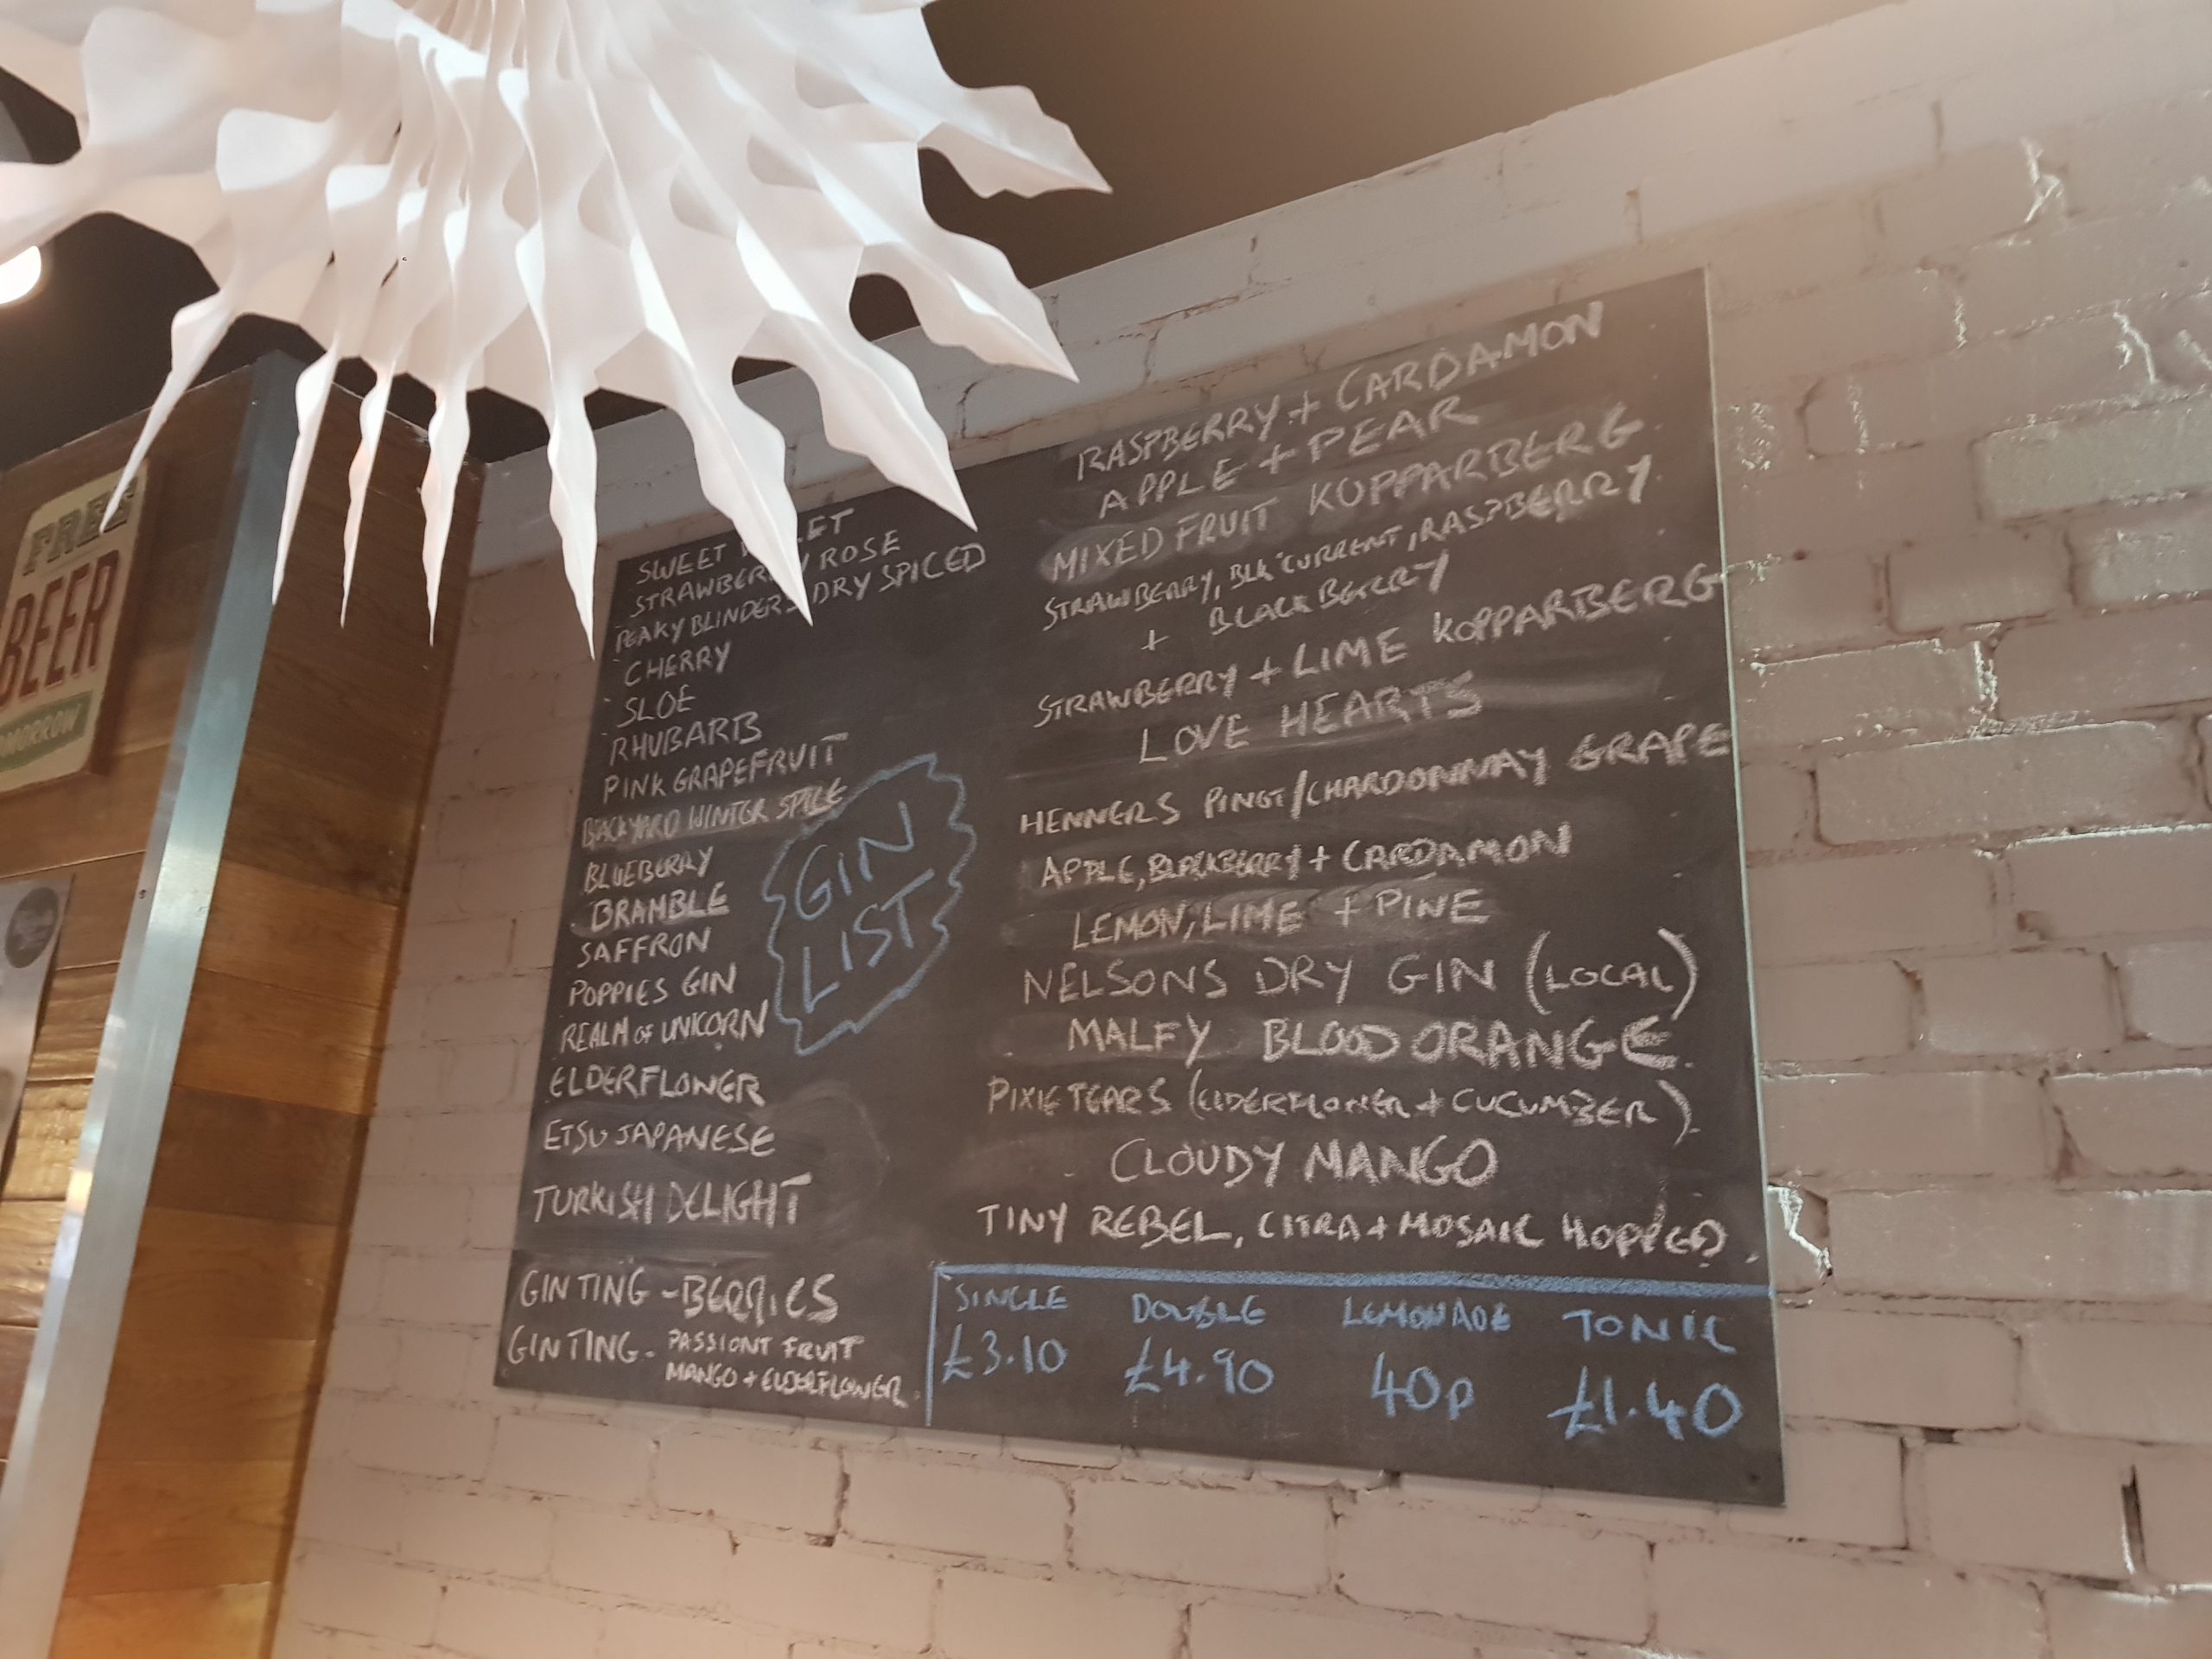 FREE
BEER
MORROW
SWEET
STRAWBERRY ROSE
PEAKY BLINDERS DRY SPICED
CHERRY
SLOE
RHUBARB
PINK GRAPEFRUIT
BLACKYARD WINTER SPICE
BLUEBERRY
BRAMBLE
SAFFRON
POPPIES GIN
REALM OF UNICORN
ELDERFLOWER
ETSU JAPANESE
TURKISH DELIGHT
GIN TING - BERRIES
GIN TING - PASSIONT FRUIT
MANGO + ELDERFLOWER
GIN
LIST
RASPBERRY + CARDAMON
APPLE + PEAR
MIXED FRUIT KOPPARBERG
STRAWBERRY, BLK CURRENT, RASPBERRY
+ BLACKBERRY
STRAWBERRY + LIME KOPPARBERG
LOVE HEARTS
HENNERS PINOT/CHARDONNAY GRAPE
APPLE, BLACKBERRY + CARDAMON
LEMON, LIME + PINE
NELSONS DRY GIN (LOCAL)
MALFY BLOOD ORANGE
PIXIE TEARS (ELDERFLOWER + CUCUMBER)
CLOUDY MANGO
TINY REBEL, CITRA + MOSAIC HOPPED.
SINGLE DOUBLE LEMONADE TONIC
£3.10 £4.90 40p £1.40